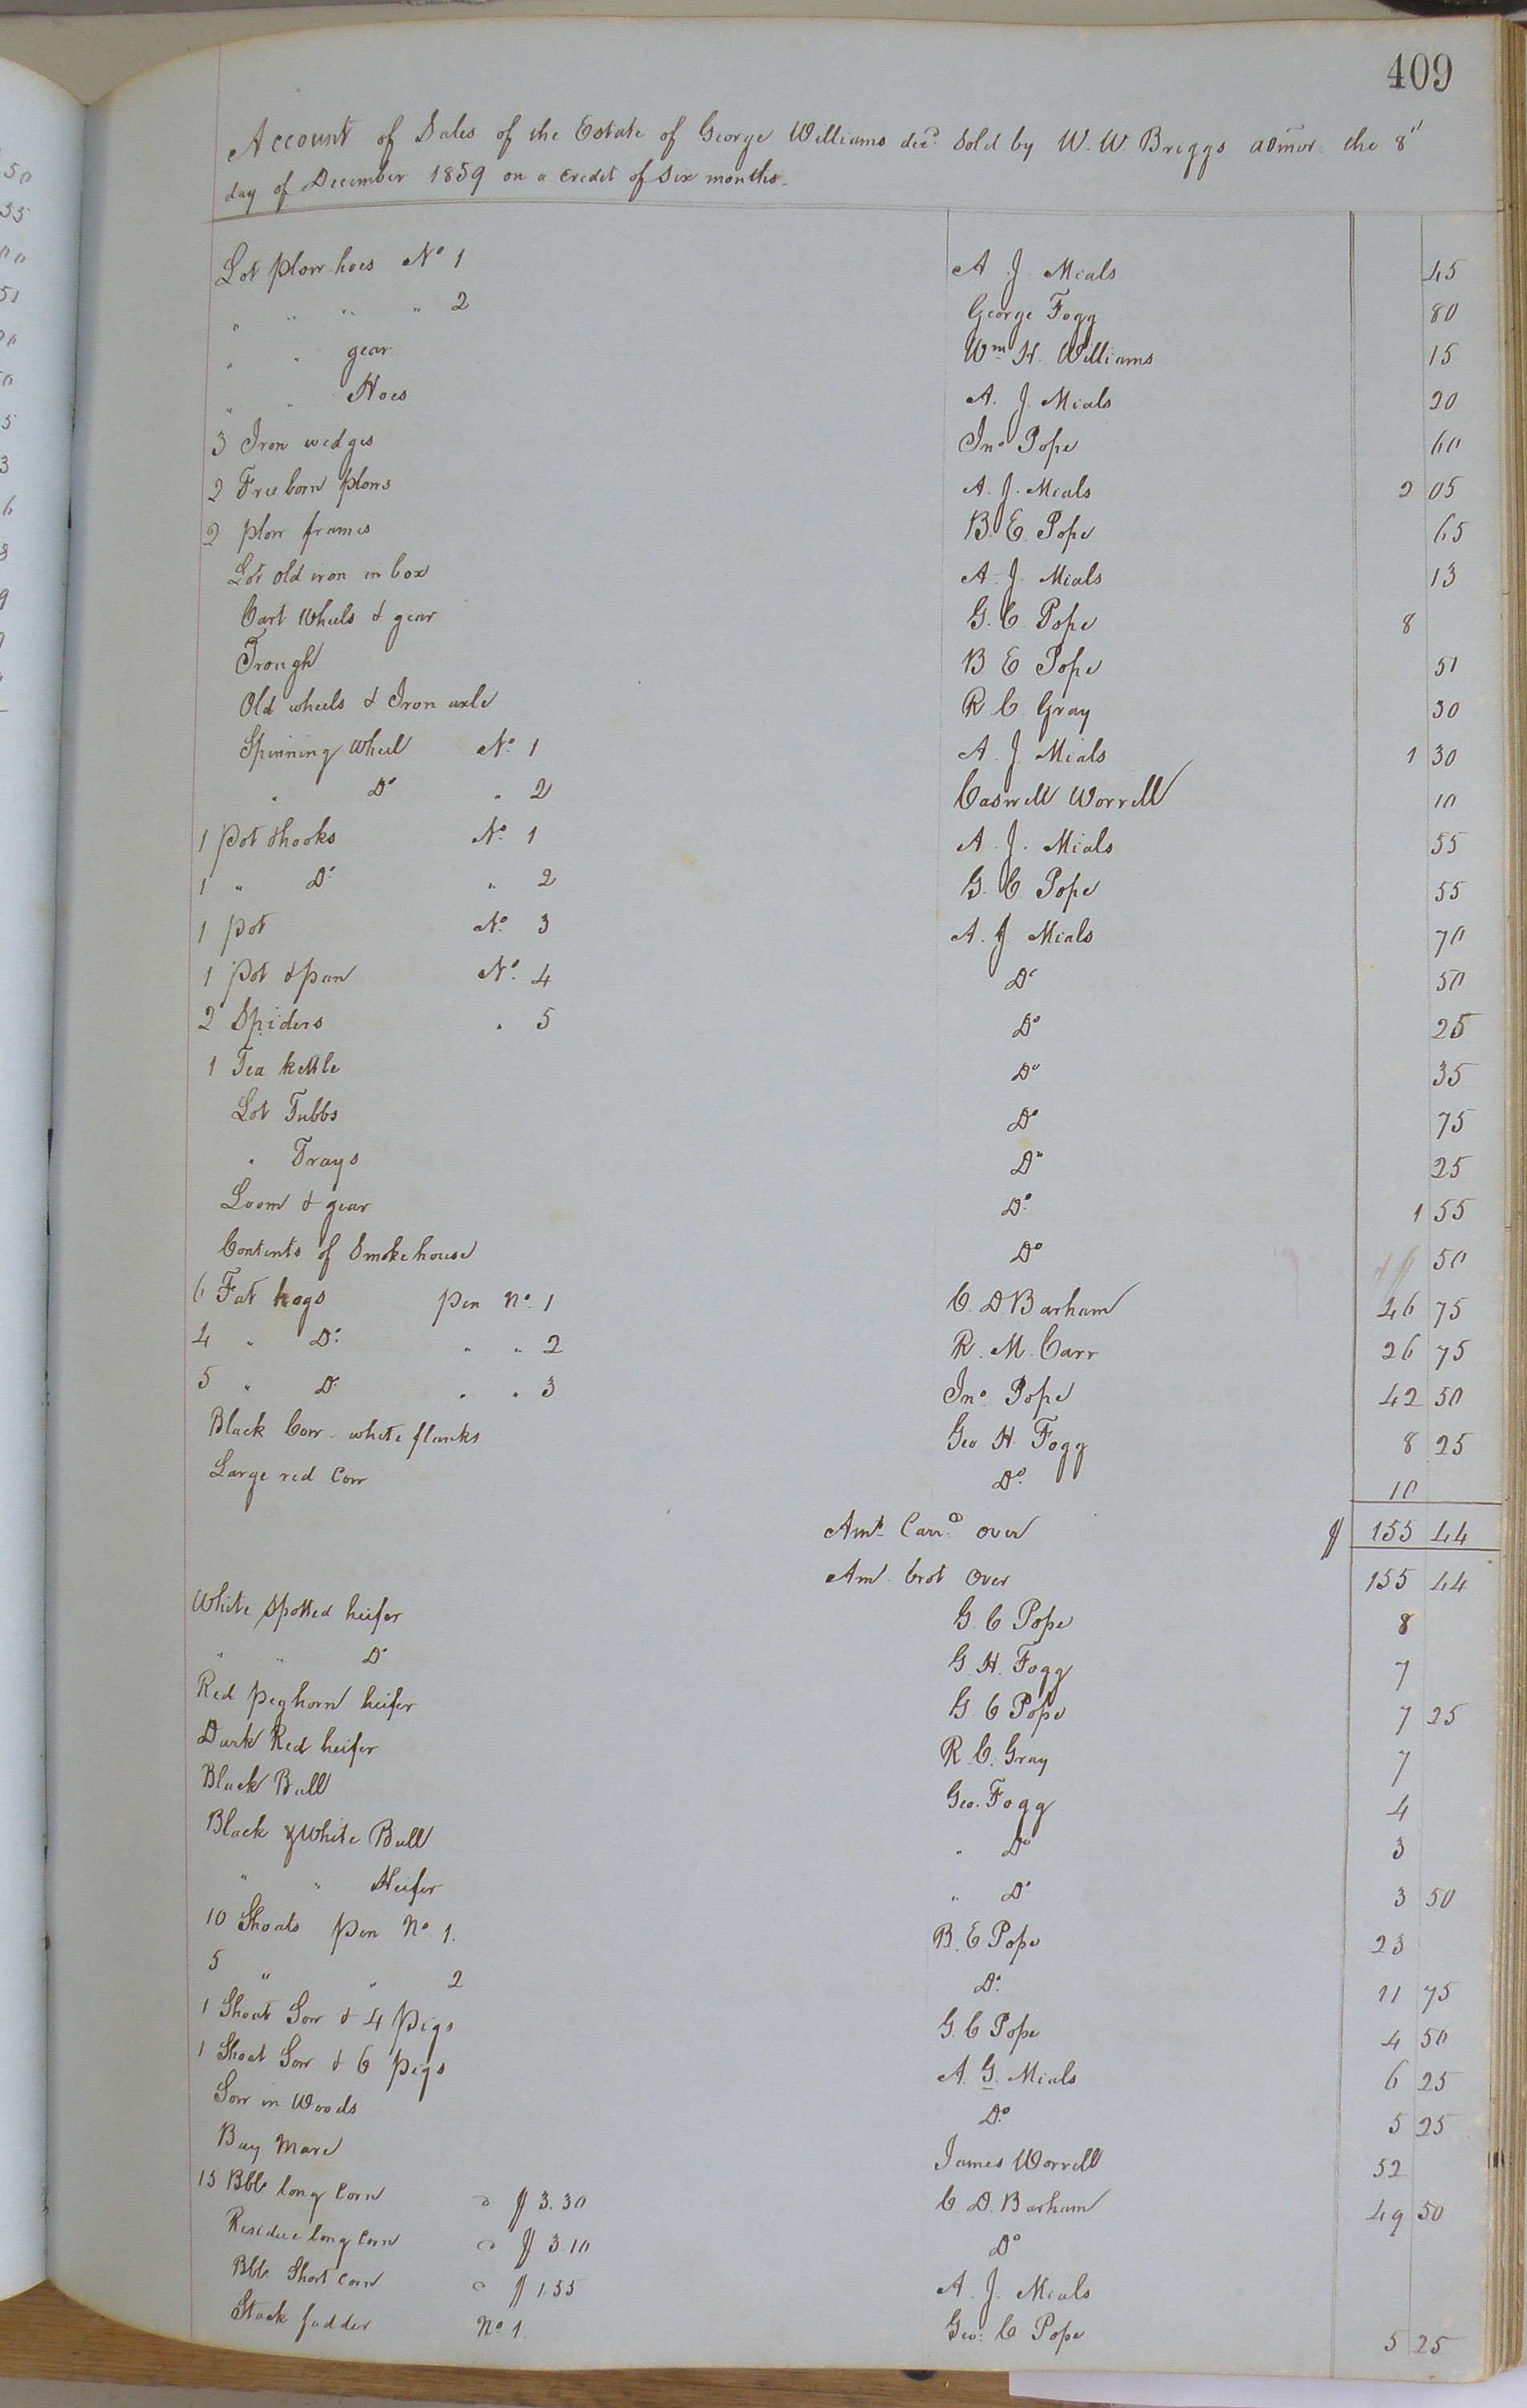 409
Account of Sales of the Estate of George Williams decd. Sold by W. W. Briggs admor. the 8"
day of December 1859 on a credit of six months.
Lot plow hoes No 1 A. J. Mials 45
" " " " 2 George Fogg 80
" " gear Wm H. Williams 15
" " Hoes A. J. Mials 20
3 Iron wedges Jno Pope 60
2 Freeborn plows A. J. Mials 2 05
2 plow frames B. E. Pope 65
Lot old iron in box A. J. Mials 13
Cart Wheels & gear G. C. Pope 8
Trough B E Pope 51
Old wheels & Iron axle R. C. Gray 30
Spinning Wheel No. 1 A. J. Mials 1 30
" Do " 2 Caswell Worrell 10
1 Pot & hooks No. 1 A. J. Mials 55
1 " Do " 2 G. C. Pope 55
1 Pot No. 3 A. J. Mials 70
1 Pot & pan No. 4 Do 50
2 Spiders " 5 Do 25
1 Tea kettle Do 35
Lot Tubbs Do 75
" Trays Do 25
Loom & gear Do. 1 55
Contents of Smokehouse Do 50
6 Fat hogs pen No. 1 C. D Barham 46 75
4 " Do. " " 2 R. M. Carr 26 75
5 " Do. " " 3 Jno. Pope 42 50
Black Cow - white flanks Geo H. Fogg 8 25
Large red Cow Do. 10
Amt. Carrd. over $ 155 44
Am brot over 155 44
White spotted heifer G. C Pope 8
" " Do G. H. Fogg 7
Red peghorn heifer G. C Pope 7 25
Dark Red heifer R. C. Gray 7
Black Bull Geo. Fogg 4
Black & White Bull " Do 3
" " Heifer " Do 3 50
10 Shoats pen No 1. B. E Pope 23
5 " " 2 Do. 11 75
1 Shoat Sow & 4 pigs G. C Pope 4 50
1 Shoat Sow & 6 pigs A. G. Mials 6 25
Sow in Woods Do. 5 25
Bay Mare James Worrell 52
15 Bbls long Corn @ $ 3.30 C. D. Barham 49 50
Residue long Corn @ $ 3.10 Do
Bbls. Short Corn @ $ 1.55 A. J. Mials
Stack fodder No 1. Geo: C Pope 5 25